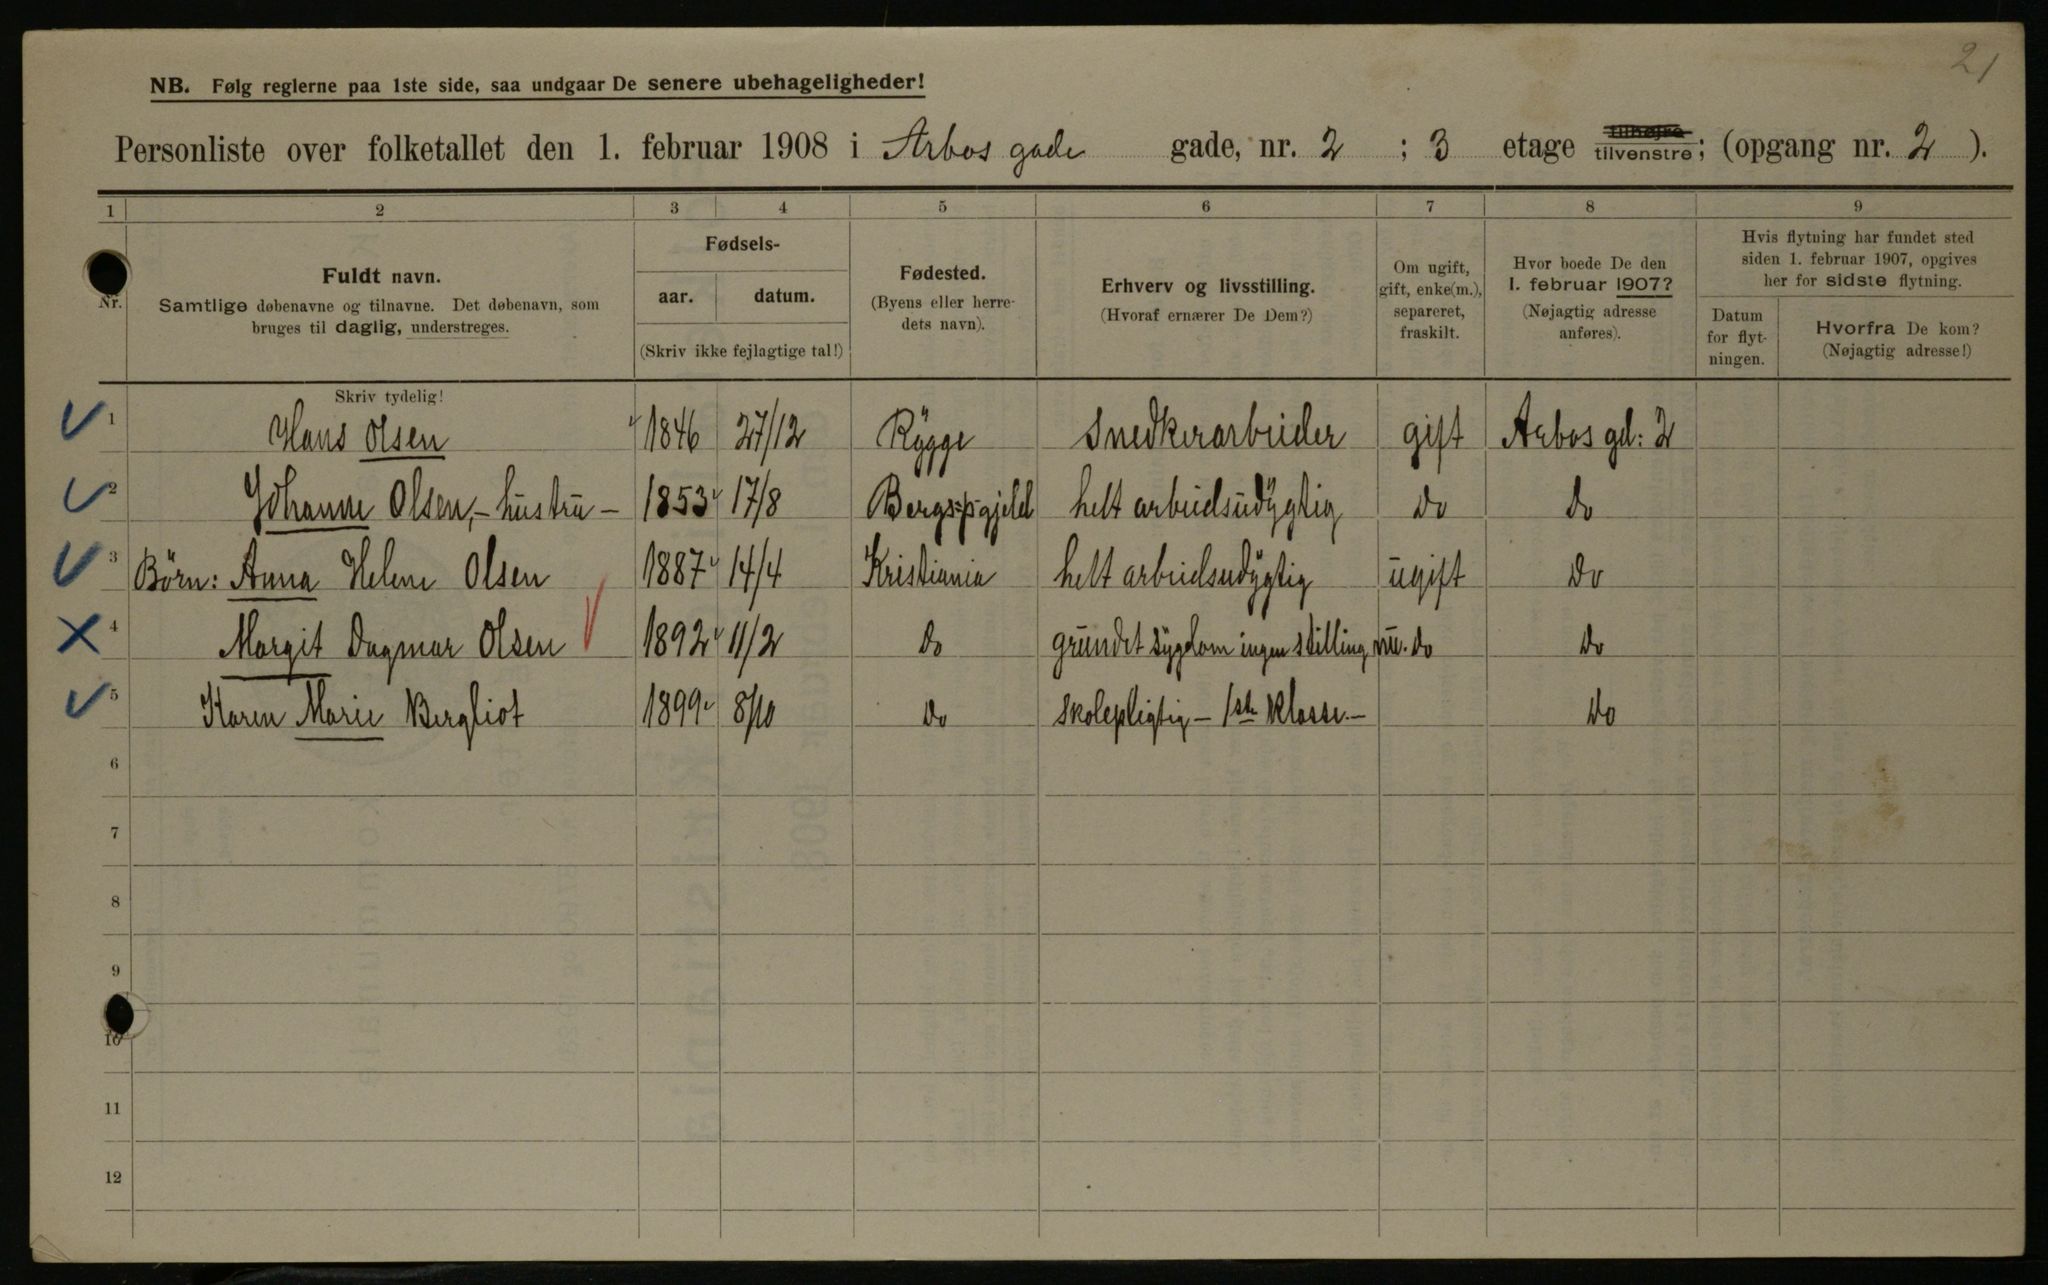 21
NB. Følg reglerne paa 1ste side, saa undgaar De senere ubehageligheder!
Personliste over folketallet den 1. februar 1908 i Arbos gade gade, nr. 2 ; 3 etage tilhøjre tilvenstre; (opgang nr. 2 ).
1 2 3 4 5 6 7 8 9
Nr.
Fuldt navn.
Samtlige døbenavne og tilnavne. Det døbenavn, som
bruges til daglig, understreges.
Fødsels-
aar. datum.
(Skriv ikke fejlagtige tal!)
Fødested.
(Byens eller herre-
dets navn).
Erhverv og livsstilling.
(Hvoraf ernærer De Dem?)
Om ugift,
gift, enke(m.),
separeret,
fraskilt.
Hvor boede De den
1. februar 1907?
(Nøjagtig adresse
anføres).
Hvis flytning har fundet sted
siden 1. februar 1907, opgives
her for sidste flytning.
Datum
for flyt-
ningen.
Hvorfra De kom?
(Nøjagtig adresse!)
Skriv tydelig!
1 Hans Olsen 1846 27/12 Rygge Snedkerarbeider gift Arbos gd: 2
2 Johanne Olsen, - hustru - 1853 17/8 Bergs=p=gjeld helt arbeidsudygtig Do Do
3 Børn: Anna Helene Olsen 1887 14/4 Kristiania helt arbeidsudygtig ugift Do
4 Margit Dagmar Olsen 1892 11/2 Do grundet sygdom ingen stilling nu. Do Do
5 Karen Marie Bergliot 1899 8/10 Do Skolepligtig - 1ste Klasse - Do
6
7
8
9
10
11
12